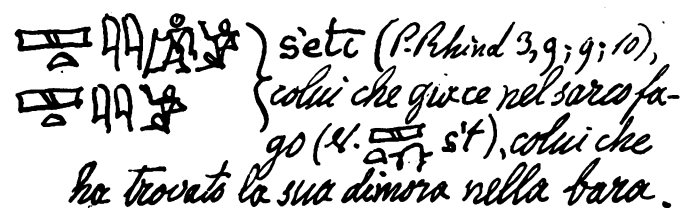 s'etc (P. Rhind 3, 9; 9; 10),
colui che giace nel sarcofa-
go (V. s't), colui che
ha trovato la sua dimora nella bara.